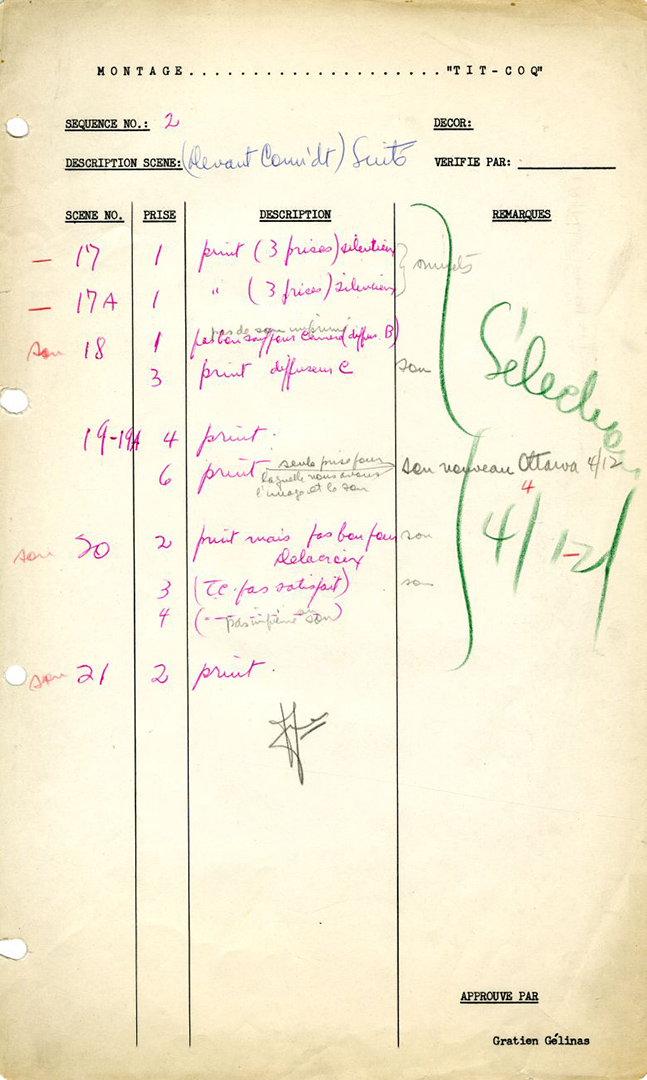 MONTAGE....................."TIT-COQ"
SEQUENCE NO.: 2 DECOR:
DESCRIPTION SCENE: (Devant Comédt) Suite VERIFIE PAR:
SCENE NO. PRISE DESCRIPTION REMARQUES
— 17 1 print (3 prises) silencieux
— 17A 1 " (3 prises) silencieux
pas de son imprimé
son 18 1 pas bon pour Caméra (diffus. B)
3 print diffuseur C son
Sélection
19-19A 4 print.
seule prise pour
6 print son nouveau Ottawa 4/12
laquelle nous avons
l'image et le son
4
4/12
son 20 2 print mais pas bon pour son
Delacroix
3 (T.C. pas satisfait) son
4 pas imprimé son
son 21 2 print.
APPROUVE PAR
Gratien Gélinas